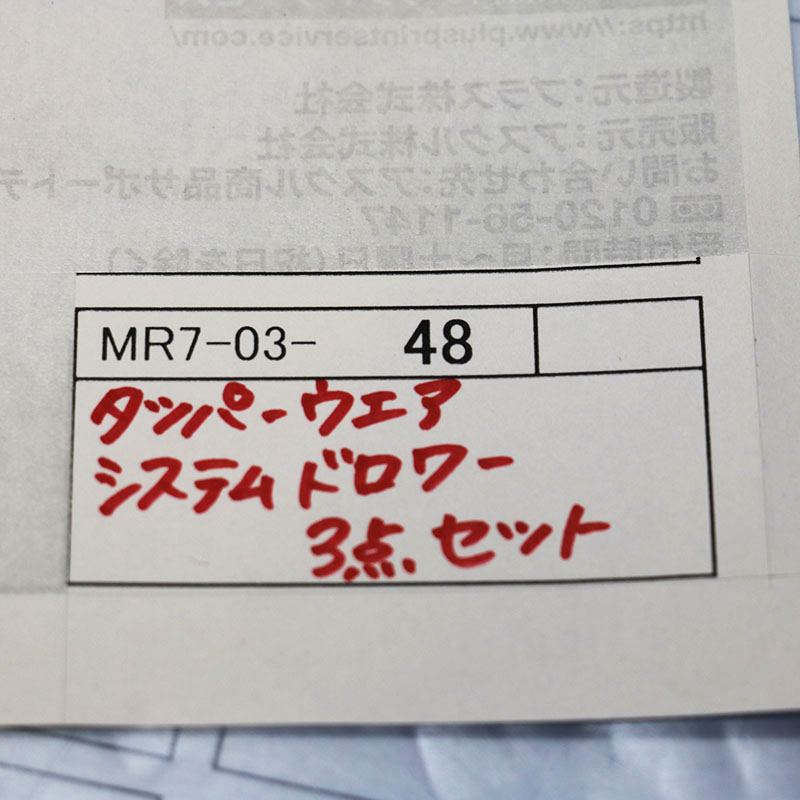 https://www.plusprintservice.com/
製造元：プラス株式会社
販売元：アスクル株式会社
お問い合わせ先：アスクル商品サポートデ
0120-56-1147
受付時間：月～土曜日（祝日を除く）
MR7-03- 48
タッパーウエア
システムドロワー
3点セット